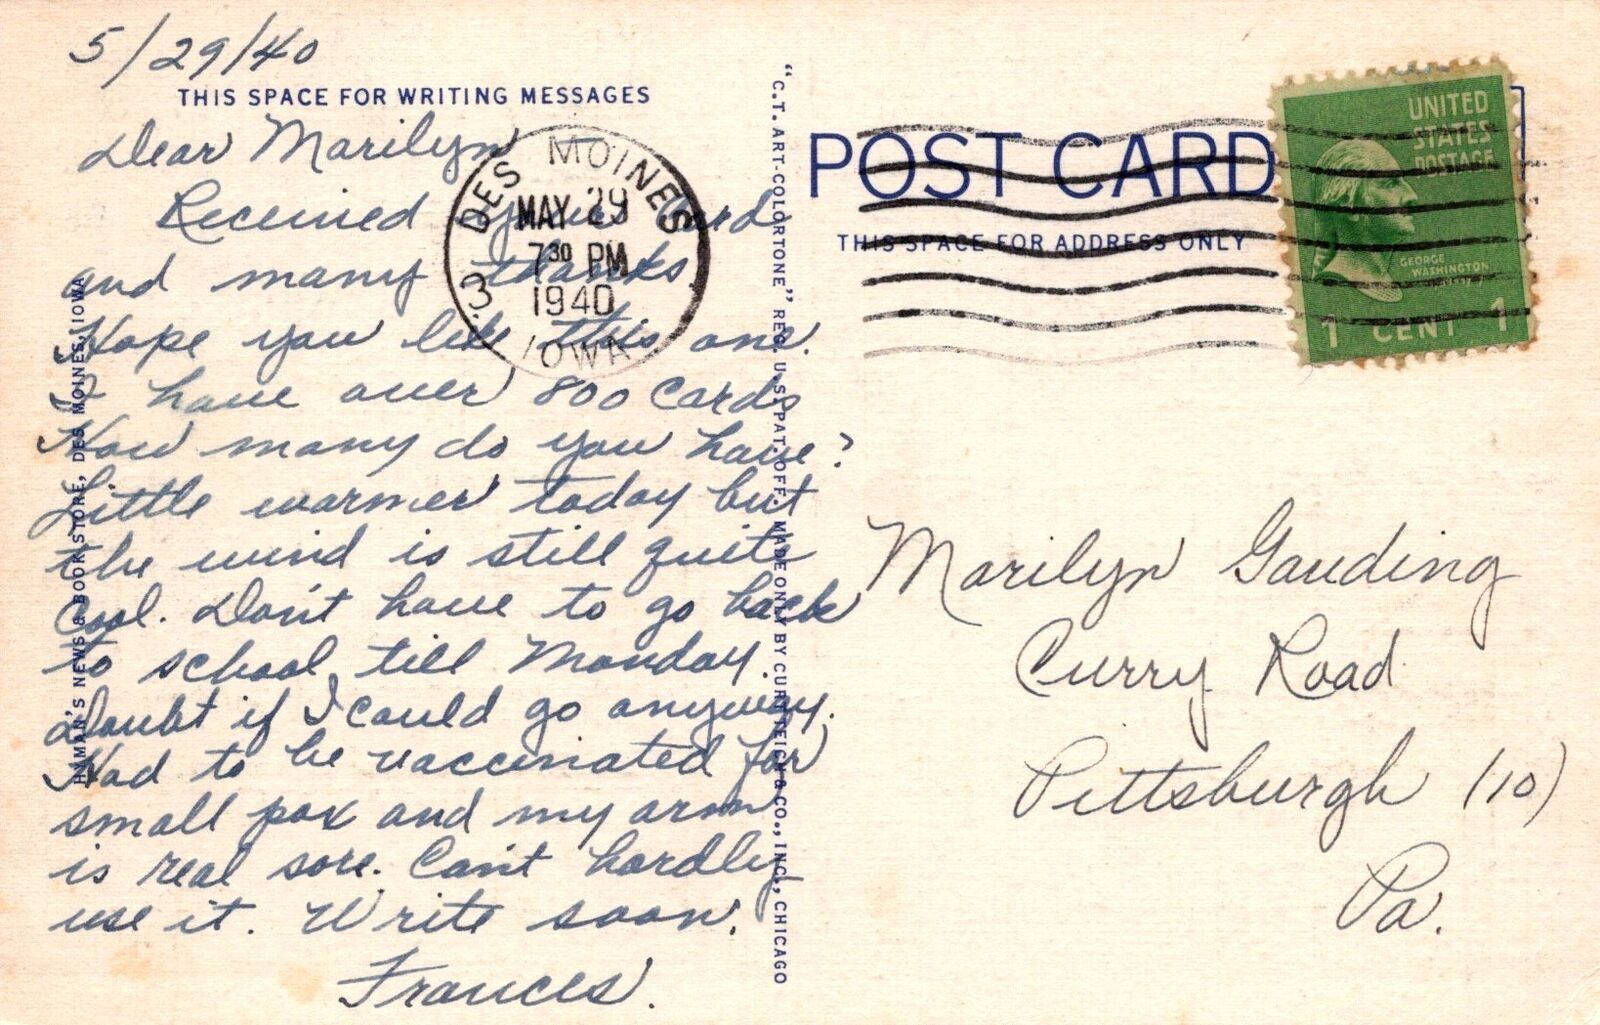 5/29/40
THIS SPACE FOR WRITING MESSAGES
Dear Marilyn
Received your card
and many thanks.
Hope you like this one.
I have over 800 cards
How many do you have?
Little warmer today but
the wind is still quite
cool. Don't have to go back
to school till Monday.
Doubt if I could go anyway.
Had to be vaccinated for
small pox and my arm
is real sore. Can't hardly
use it. Write soon.
Frances.
HYMAN'S NEWS & BOOK STORE, DES MOINES, IOWA
DES MOINES
MAY 29
7 30 PM
1940
3
IOWA
"C.T. ART-COLORTONE" REG. U.S. PAT. OFF. MADE ONLY BY CURT TEICH & CO., INC., CHICAGO
POST CARD
THIS SPACE FOR ADDRESS ONLY
UNITED
STATES
POSTAGE
GEORGE
WASHINGTON
1 CENT 1
Marilyn Gauding
Curry Road
Pittsburgh (10)
Pa.